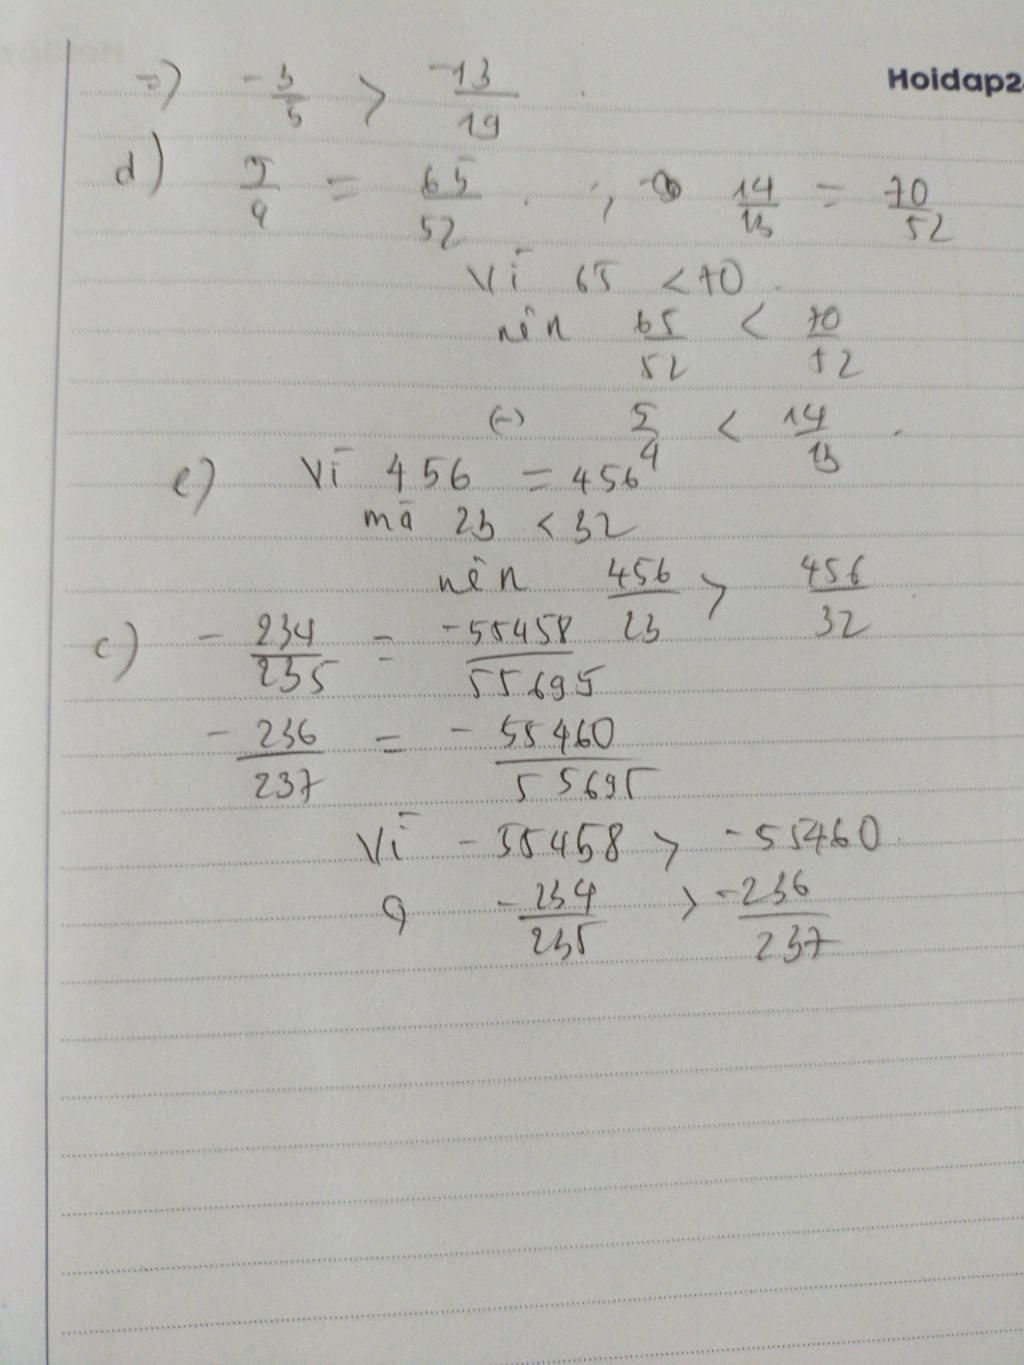 =) -3/5 > -13/19 Hoidap2
d) 5/4 = 65/52 ; 14/13 = 70/52
Vì 65 < 70
nên 65/52 < 70/52
(-) 5/4 < 14/13
e) Vì 456 = 456
mà 23 < 32
nên 456/23 > 456/32
c) - 234/235 = -55458/55695
- 236/237 = - 55460/55695
Vì -55458 > -55460
-234/235 > -236/237